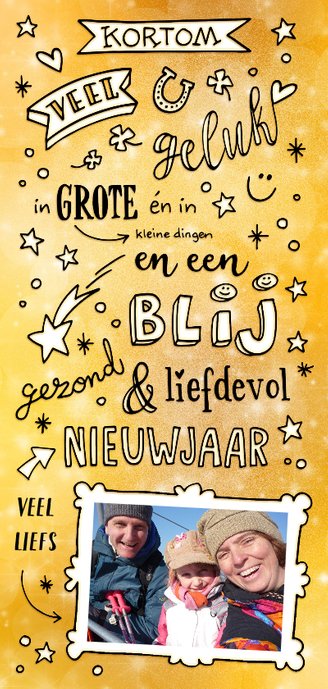 KORTOM
VEEL
geluk
in GROTE én in
kleine dingen
en een
BLIJ
gezond & liefdevol
NIEUWJAAR
VEEL
LIEFS